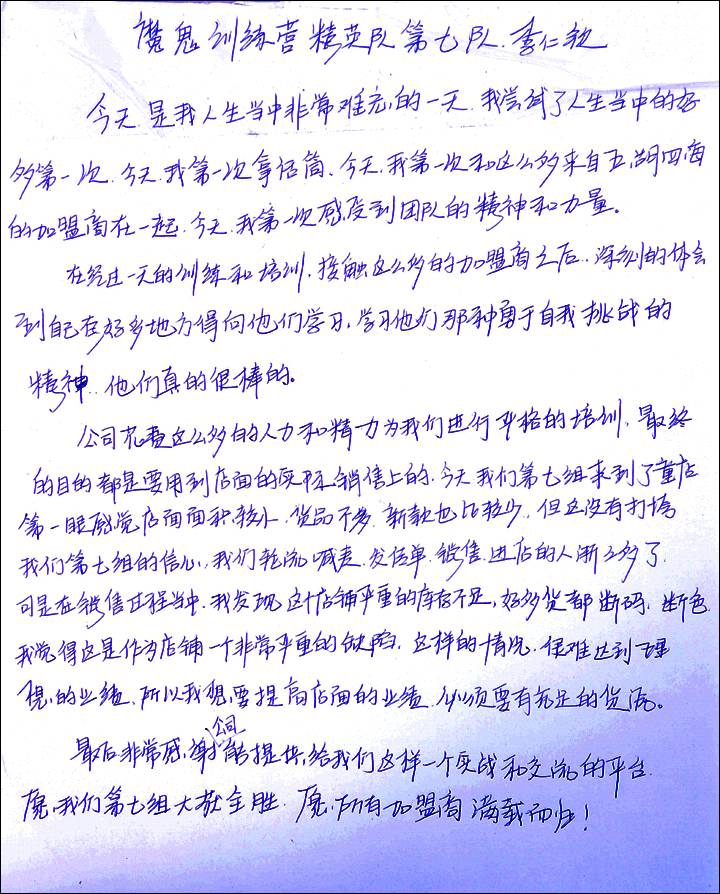 魔鬼训练营精英队第七队 李仁钦
今天是我人生当中非常难忘的一天 我尝试了人生当中的好
多第一次 今天我第一次拿话筒、今天我第一次和这么多来自五湖四海
的加盟商在一起 今天我第一次感受到团队的精神和力量。
在经过一天的训练和培训,接触这么多的加盟商之后 深刻的体会
到自己在好多地方得向他们学习,学习他们那种勇于自我挑战的
精神 他们真的很棒的。
公司花费这么多的人力和精力为我们进行严格的培训,最终
的目的都是要用到店面的实际销售上的 今天我们第七组来到了童店
第一眼感觉店面面积较小 货品不多 新款也比较少 但这没有打垮
我们第七组的信心,我们轮流喊麦 发传单 销售 进店的人渐渐多了
可是在销售过程当中 我发现这个店铺严重的库存不足,好多货都断码、断色
我觉得这是作为店铺一个非常严重的缺陷,这样的情况 很难达到理
想的业绩,所以我想要提高店面的业绩 必须要有充足的货源。
最后非常感谢公司能提供给我们这样一个实战和交流的平台
愿我们第七组大获全胜 愿所有加盟商满载而归!